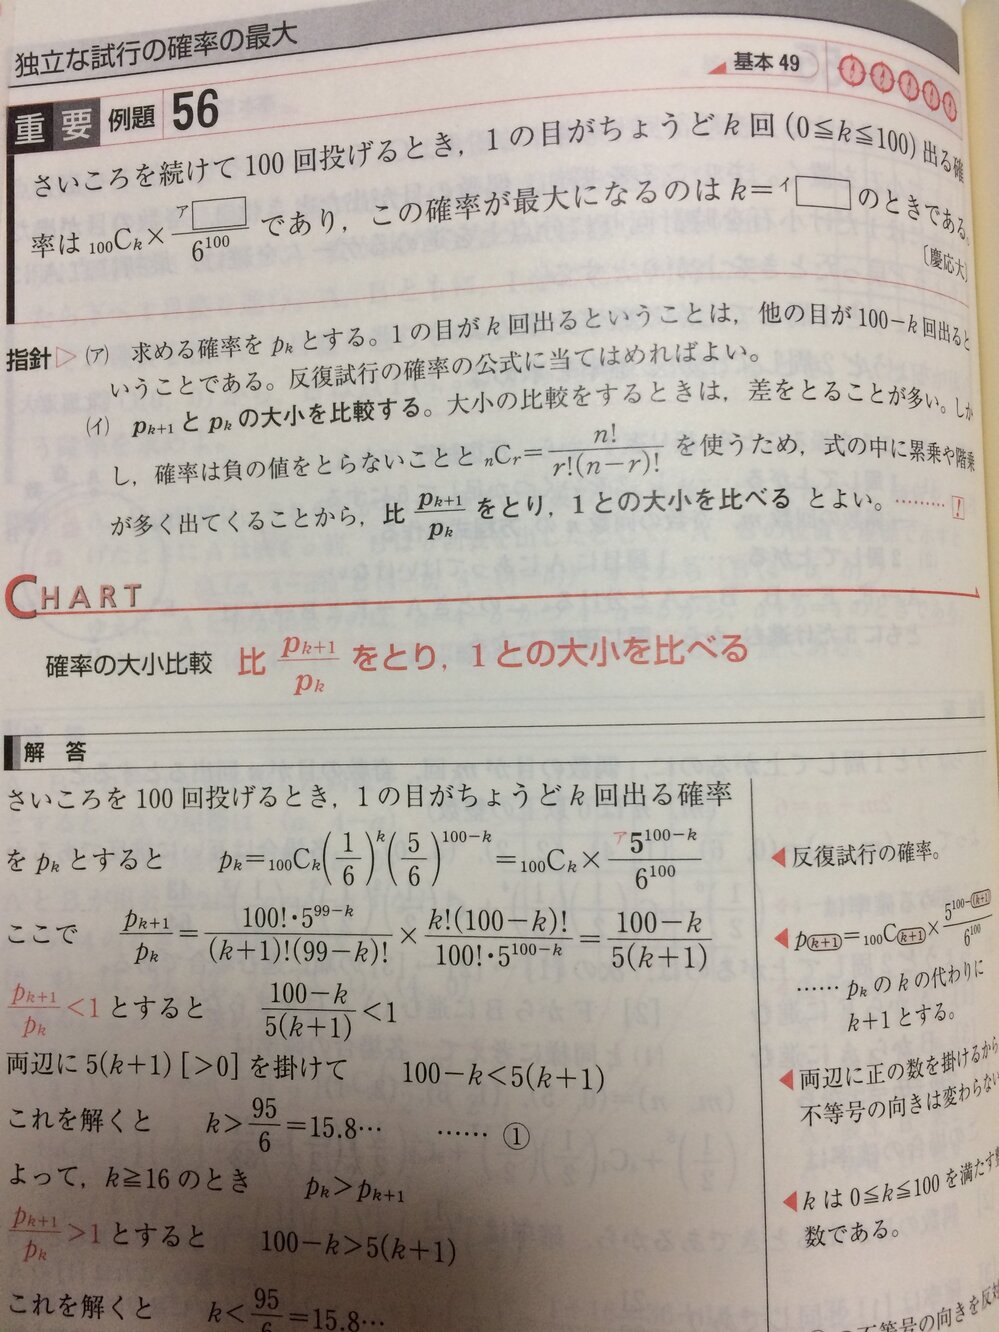 独立な試行の確率の最大
基本 49
重要 例題 56
さいころを続けて 100 回投げるとき，1 の目がちょうど k 回 (0≦k≦100) 出る確
率は ₁₀₀Cₖ× ア□/6¹⁰⁰ であり，この確率が最大になるのは k=イ□ のときである。
〔慶応大〕
指針▷ (ア) 求める確率を pₖ とする。1 の目が k 回出るということは，他の目が 100−k 回出ると
いうことである。反復試行の確率の公式に当てはめればよい。
(イ) pₖ₊₁ と pₖ の大小を比較する。大小の比較をするときは，差をとることが多い。しか
し，確率は負の値をとらないことと ₙCᵣ= n!/r!(n−r)! を使うため，式の中に累乗や階乗
が多く出てくることから，比 pₖ₊₁/pₖ をとり，1 との大小を比べる とよい。……… !
CHART
確率の大小比較 比 pₖ₊₁/pₖ をとり，1 との大小を比べる
解 答
さいころを 100 回投げるとき，1 の目がちょうど k 回出る確率
を pₖ とすると pₖ=₁₀₀Cₖ(1/6)^k(5/6)^(100−k)=₁₀₀Cₖ× ア5^(100−k)/6¹⁰⁰
◀反復試行の確率。
ここで pₖ₊₁/pₖ = 100!・5^(99−k)/(k+1)!(99−k)! × k!(100−k)!/100!・5^(100−k) = 100−k/5(k+1)
◀p(k+1)=₁₀₀C(k+1)× 5^(100−(k+1))/6¹⁰⁰
…… pₖ の k の代わりに
k+1 とする。
pₖ₊₁/pₖ <1 とすると 100−k/5(k+1) <1
両辺に 5(k+1) [>0] を掛けて 100−k<5(k+1)
◀両辺に正の数を掛けるから
不等号の向きは変わらない
これを解くと k> 95/6 =15.8… …… ①
よって，k≧16 のとき pₖ>pₖ₊₁
◀k は 0≦k≦100 を満たす整
数である。
pₖ₊₁/pₖ >1 とすると 100−k>5(k+1)
これを解くと k< 95/6 =15.8…
不等号の向きを反対